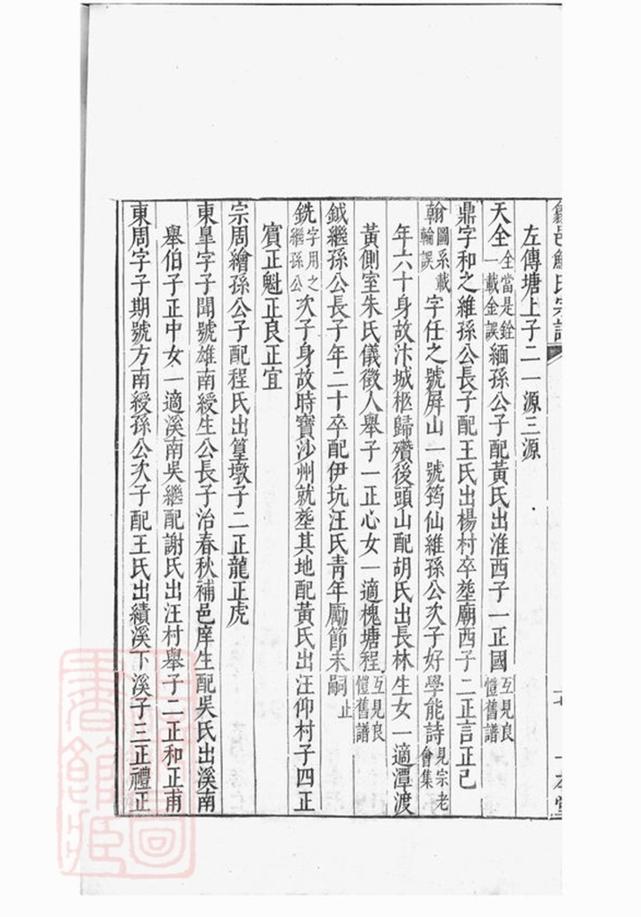 歙邑鮑氏宗譜
左傳塘上子二一源三源
天全全當是銓一載金誤緬孫公子配黃氏出淮西子一正國互見良愷舊譜
鼎字和之維孫公長子配王氏出楊村卒塟廟西子二正言正己
翰圖系載輪誤字任之號屏山一號筠仙維孫公次子好學能詩見宗老會集
年六十身故汴城柩歸殯後頭山配胡氏出長林生女一適潭渡
黃側室朱氏儀徵人舉子一正心女一適槐塘程互見良愷舊譜
鉞繼孫公長子年二十卒配伊坑汪氏青年勵節未嗣止
銑字用之繼孫公次子身故時寶沙州就塟其地配黃氏出汪仰村子四正
賓正魁正良正宜
宗周繪孫公子配程氏出篁墩子二正龍正虎
東臯字子聞號雄南綬生公長子治春秋補邑庠生配吳氏出溪南
舉伯子正中女一適溪南吳繼配謝氏出汪村舉子二正和正甫
東周字子期號方南綬孫公次子配王氏出績溪下溪子三正禮正